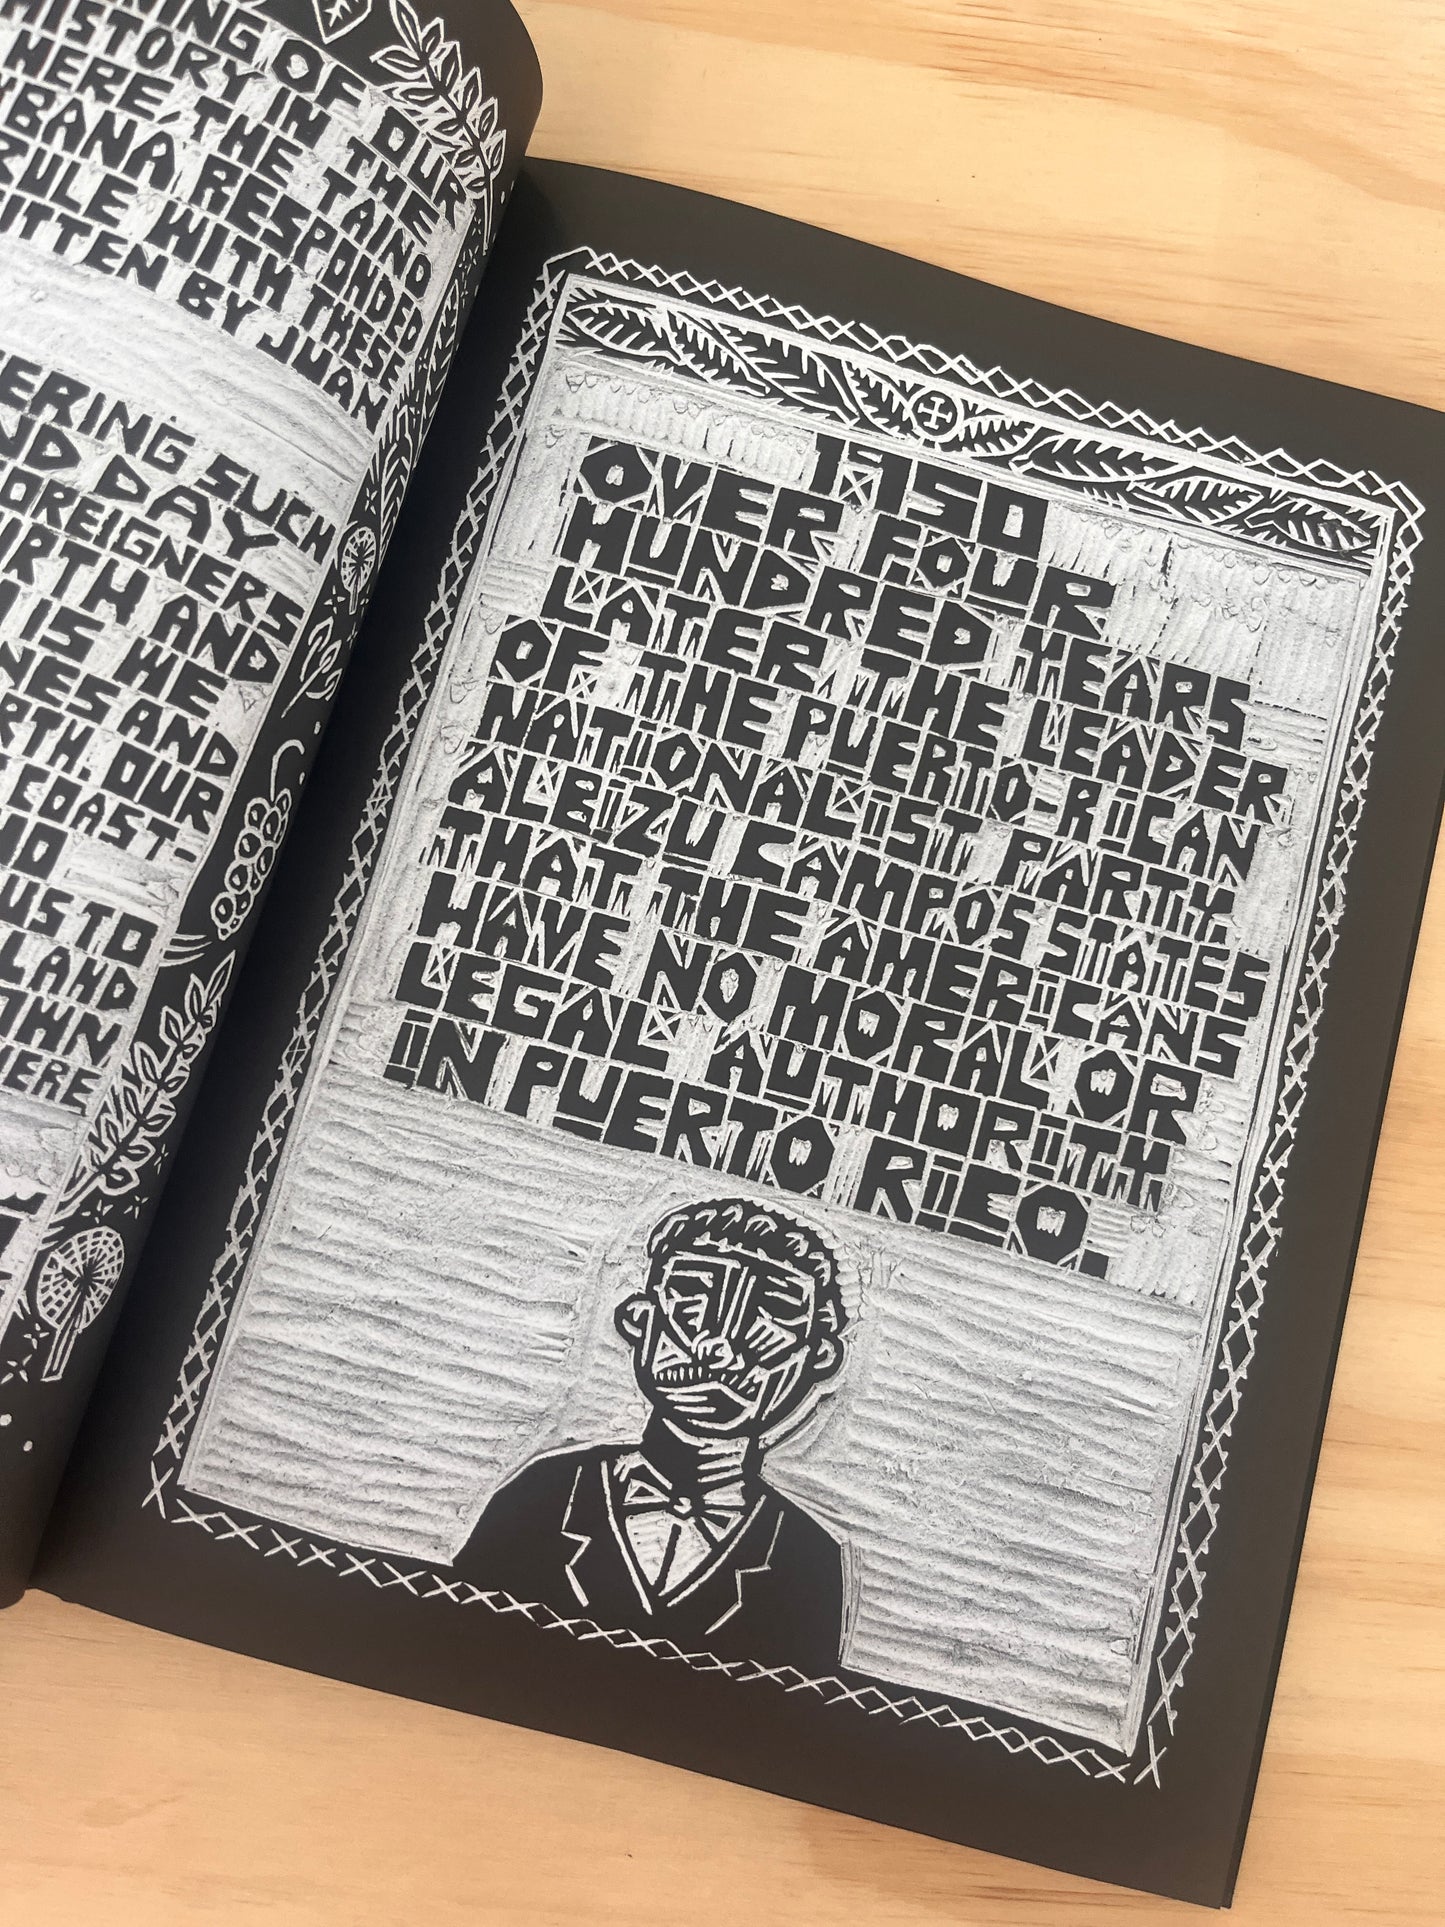 OF OUR
HISTORY IN THE
HERE, THE TAINO
RESPONDED
RULE WITH THESE
BY JUAN
SUCH
DAY
FOREIGNERS
AND
IS WE
AND
OUR
COAST-
US TO
LAND
OWN
1950
OVER FOUR
HUNDRED YEARS
LATER THE LEADER
OF THE PUERTO-RICAN
NATIONALIST PARTY.
ALBIZU CAMPOS STATES
THAT THE AMERICANS
HAVE NO MORAL OR
LEGAL AUTHORITY
IN PUERTO RICO.